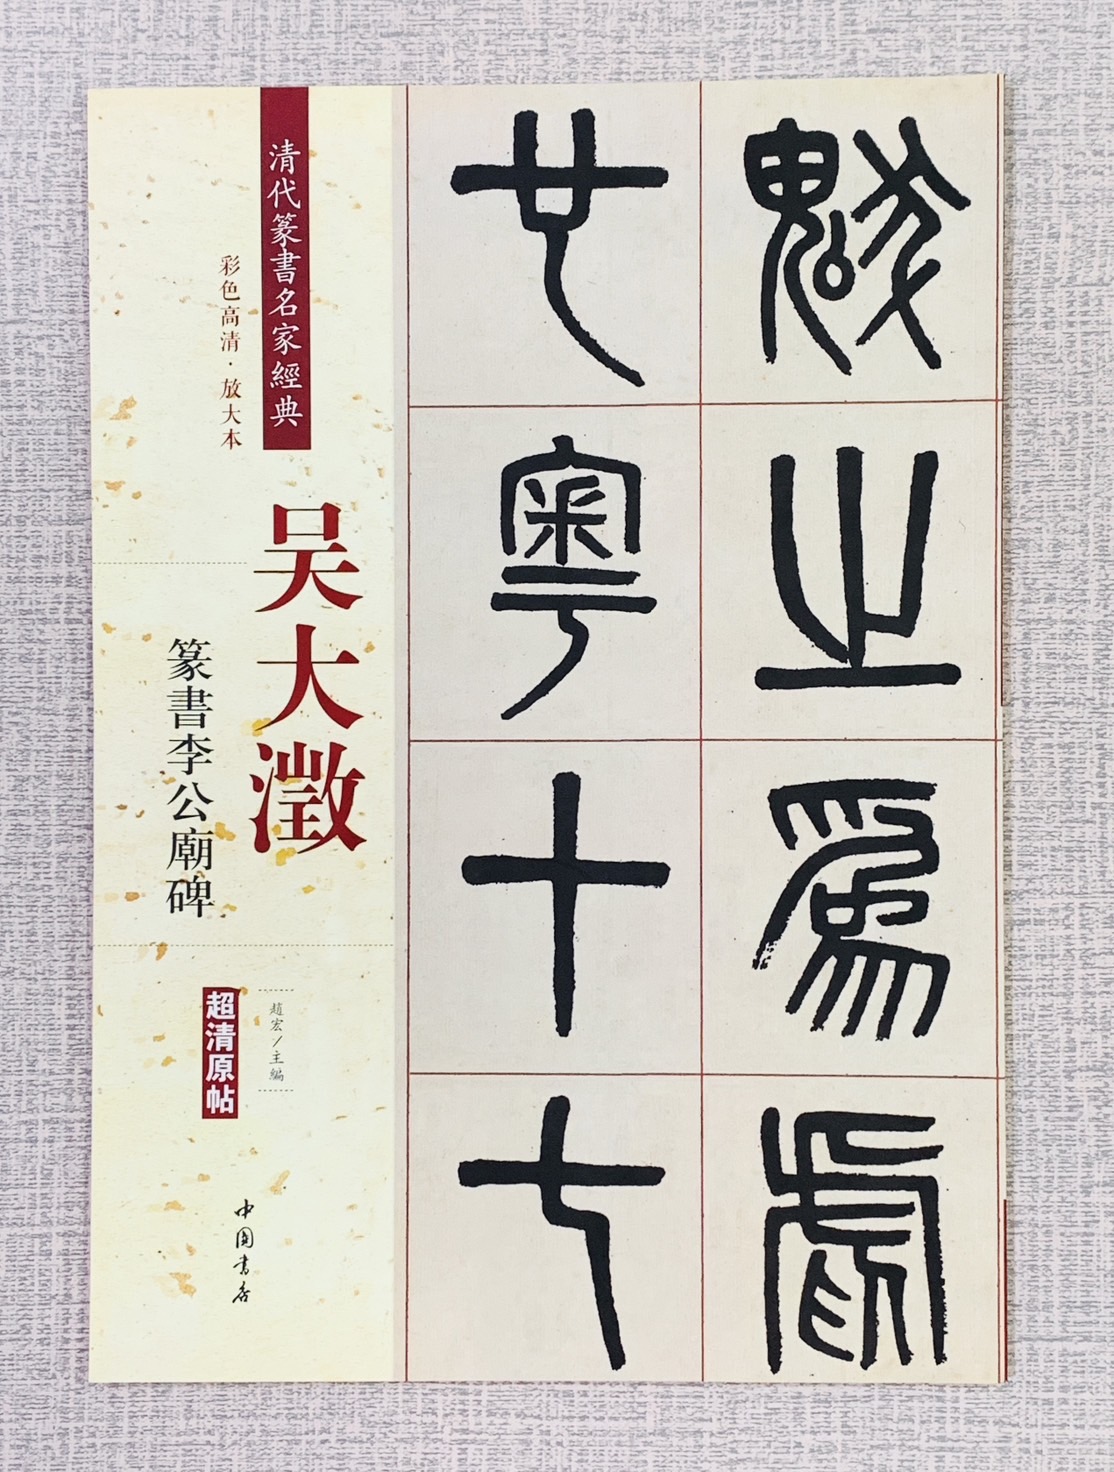 清代篆書名家經典
彩色高清·放大本
吴大澂
篆書李公廟碑
趙宏/主編
超清原帖
中國書店
魃之為虐
也粤十七